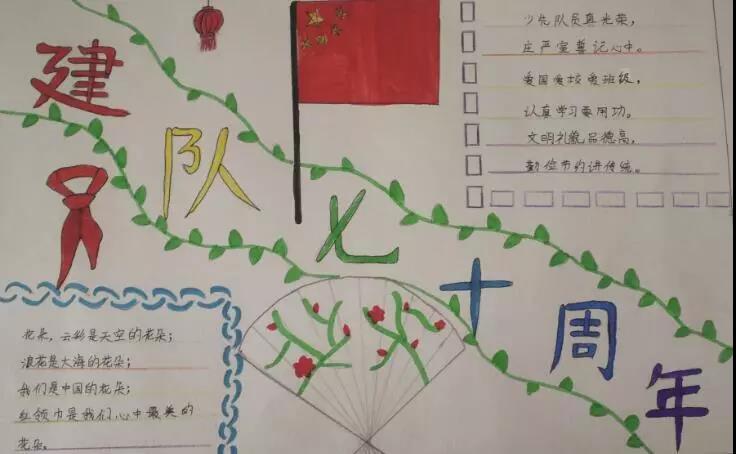 建队七十周年
少先队员真光荣，
庄严宣誓记心中。
爱国爱校爱班级，
认真学习要用功。
文明礼貌品德高，
勤俭节约讲传统。
花朵，云彩是天空的花朵；
浪花是大海的花朵；
我们是中国的花朵；
红领巾是我们心中最美的
花朵。